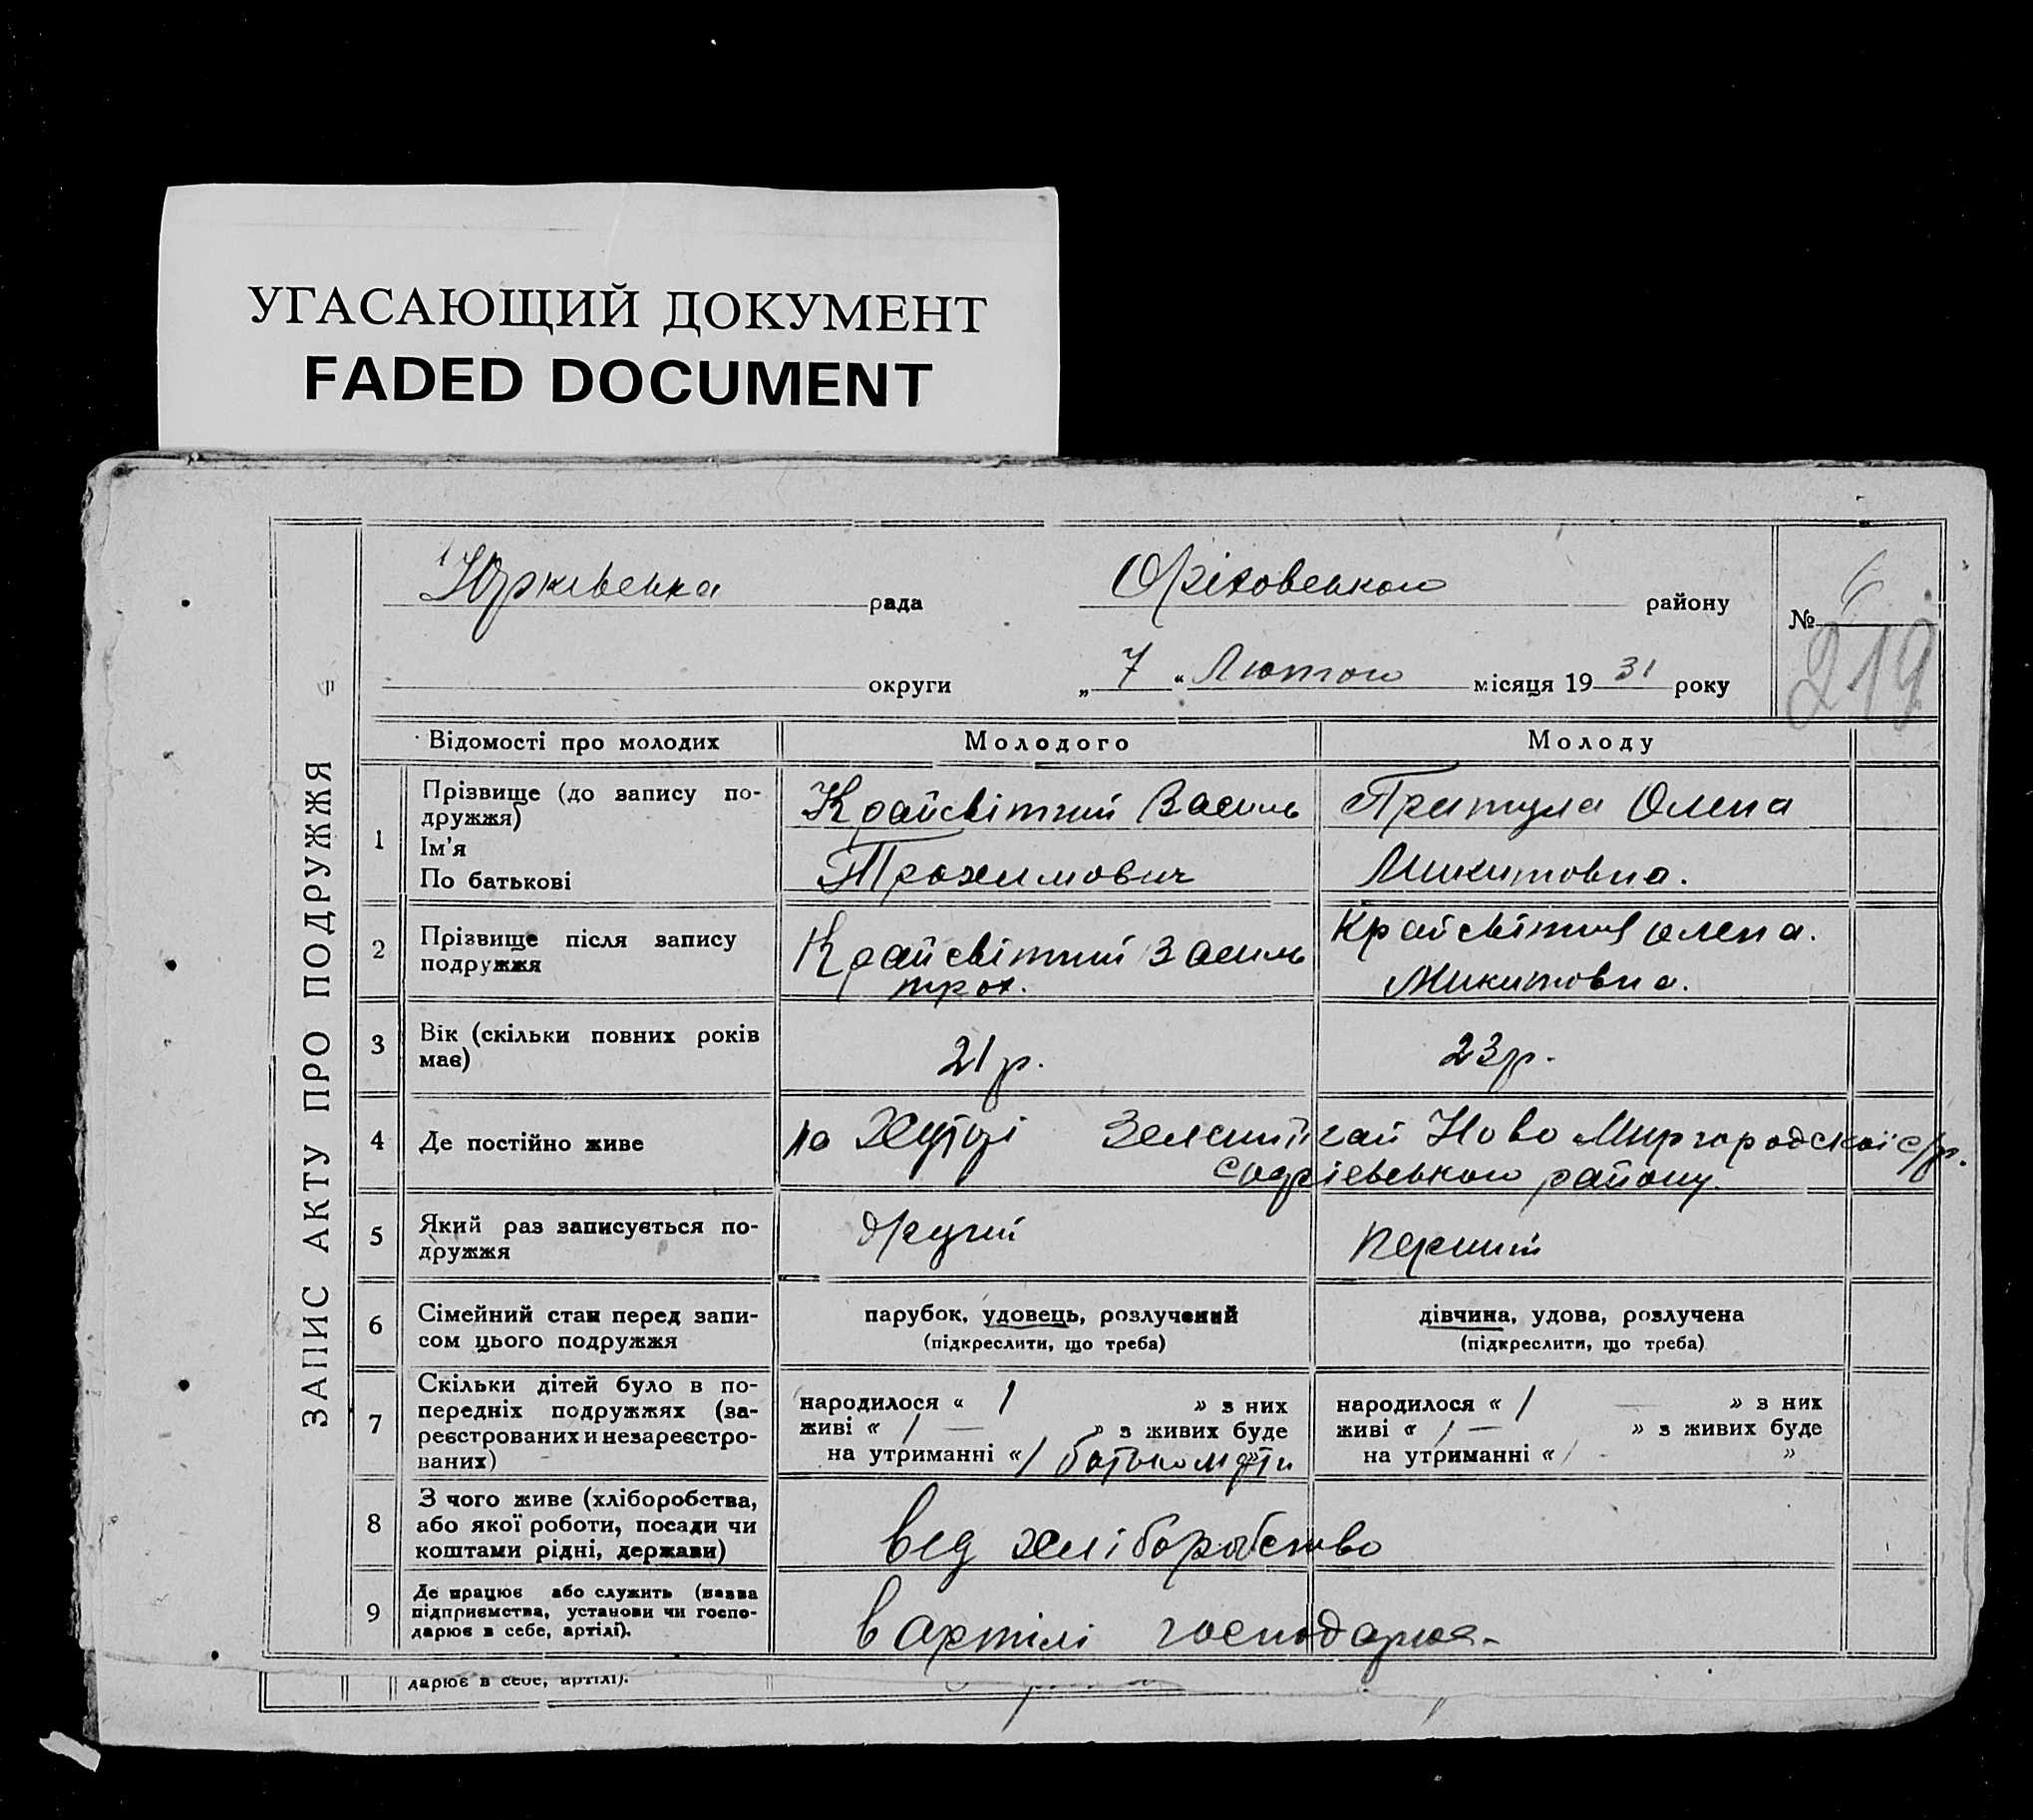 УГАСАЮЩИЙ ДОКУМЕНТ
FADED DOCUMENT
ЗАПИС АКТУ ПРО ПОДРУЖЖЯ
Юрківська рада Оріховського району № 6
округи „ 7 “ Лютого місяця 19 31 року
219
Відомості про молодих Молодого Молоду
1 Прізвище (до запису по-
дружжя)
Ім'я
По батькові
Крайсвітний Василь
Трохимович
Притула Олена
Микитовна.
2 Прізвище після запису
подружжя
Крайсвітний Василь
трох.
Крайсвітня Олена.
Микитовна.
3 Вік (скільки повних років
має)
21 р.
23 р.
4 Де постійно живе
на Хуторі Зелений гай Ново Миргородської с/р.
району.
5 Який раз записується по-
дружжя
другий
перший
6 Сімейний стан перед запи-
сом цього подружжя
парубок, удовець, розлучений
(підкреслити, що треба)
дівчина, удова, розлучена
(підкреслити, що треба)
7 Скільки дітей було в по-
передніх подружжях (за-
реєстрованих и незареєстро-
ваних)
народилося « 1 » з них
живі « / — » з живих буде
на утриманні « /
народилося « / — » з них
живі « / — » з живих буде
на утриманні « / »
8 З чого живе (хліборобства,
або якої роботи, посади чи
коштами рідні, держави)
вед хліборобство
9 Де працює або служить (назва
підприємства, установи чи госпо-
дарює в себе, артілі).
в артілі господарює.
дарює в себе, артілі).